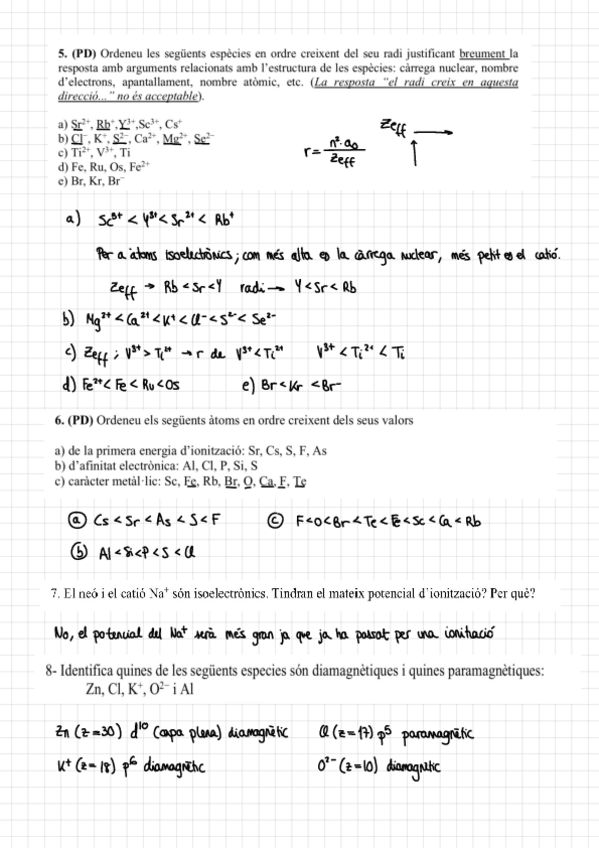 5. (PD) Ordeneu les següents espècies en ordre creixent del seu radi justificant breument la
resposta amb arguments relacionats amb l'estructura de les espècies: càrrega nuclear, nombre
d'electrons, apantallament, nombre atòmic, etc. (La resposta "el radi creix en aquesta
direcció..." no és acceptable).
a) Sr²⁺, Rb⁺,Y³⁺,Sc³⁺, Cs⁺
b) Cl⁻, K⁺, S²⁻, Ca²⁺, Mg²⁺, Se²⁻
c) Ti²⁺, V³⁺, Ti
d) Fe, Ru, Os, Fe²⁺
e) Br, Kr, Br⁻
r = n²·a₀ / Zeff
Zeff →
↑
a) Sc³⁺ < Y³⁺ < Sr²⁺ < Rb⁺
Per a àtoms isoelectrònics; com més alta es la càrrega nuclear, més petit es el catió.
Zeff → Rb < Sr < Y radi → Y < Sr < Rb
b) Mg²⁺ < Ca²⁺ < K⁺ < Cl⁻ < S²⁻ < Se²⁻
c) Zeff ; V³⁺ > Ti²⁺ → r de V³⁺ < Ti²⁺ V³⁺ < Ti²⁺ < Ti
d) Fe²⁺ < Fe < Ru < Os e) Br < Kr < Br⁻
6. (PD) Ordeneu els següents àtoms en ordre creixent dels seus valors
a) de la primera energia d'ionització: Sr, Cs, S, F, As
b) d'afinitat electrònica: Al, Cl, P, Si, S
c) caràcter metàl·lic: Sc, Fe, Rb, Br, O, Ca, F, Te
a Cs < Sr < As < S < F c F < O < Br < Te < Fe < Sc < Ca < Rb
b Al < Si < P < S < Cl
7. El neó i el catió Na⁺ són isoelectrònics. Tindran el mateix potencial d'ionització? Per què?
No, el potencial del Na⁺ serà més gran ja que ja ha passat per una ionitació
8- Identifica quines de les següents especies són diamagnètiques i quines paramagnètiques:
Zn, Cl, K⁺, O²⁻ i Al
Zn (z=30) d¹⁰ (capa plena) diamagnètic Cl (z=17) p⁵ paramagnètic
K⁺ (z=18) p⁶ diamagnètic O²⁻ (z=10) diamagnètic